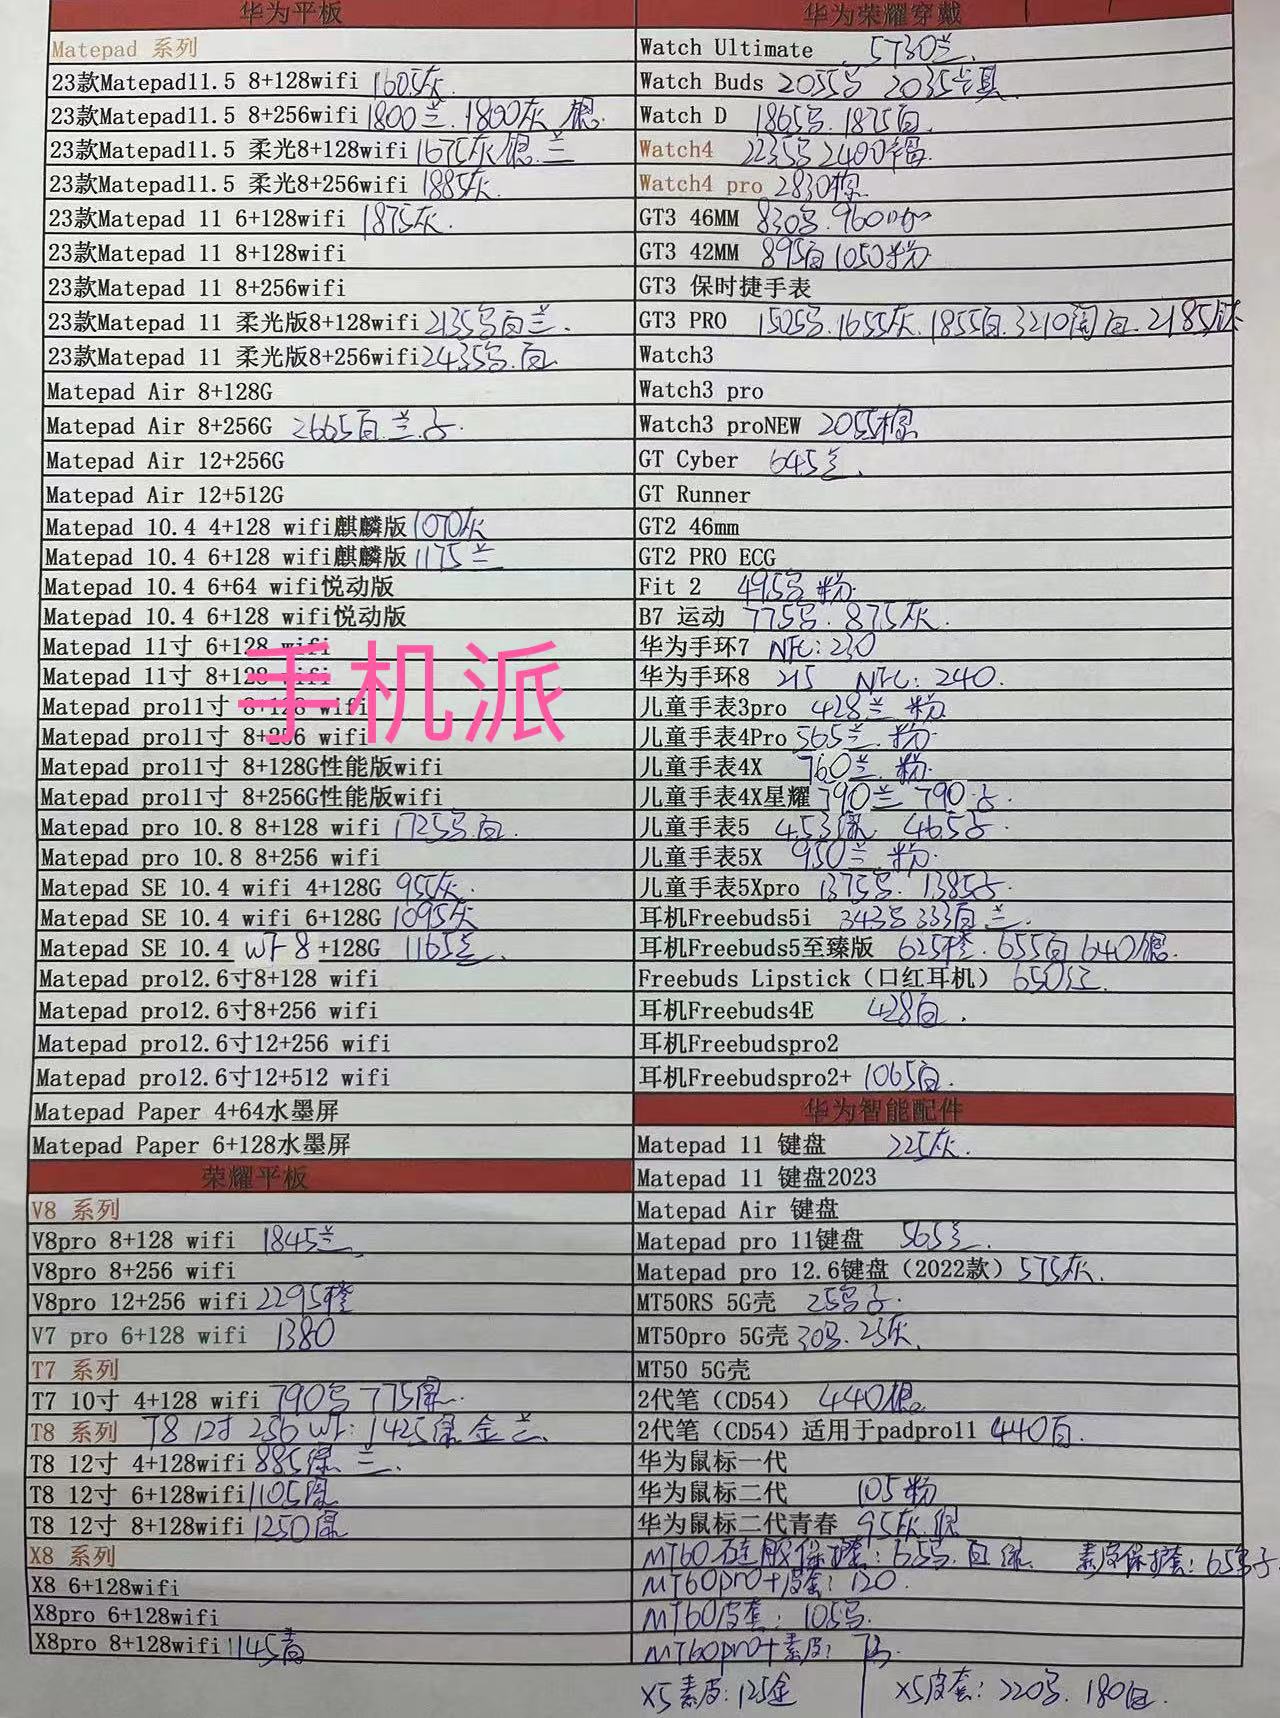 华为平板
Matepad 系列
23款Matepad11.5 8+128wifi 1605灰
23款Matepad11.5 8+256wifi 1800兰.1800灰 银.
23款Matepad11.5 柔光8+128wifi 1675灰银.兰
23款Matepad11.5 柔光8+256wifi 1885灰.
23款Matepad 11 6+128wifi 1875灰.
23款Matepad 11 8+128wifi
23款Matepad 11 8+256wifi
23款Matepad 11 柔光版8+128wifi 2135号白兰.
23款Matepad 11 柔光版8+256wifi 2435号.白
Matepad Air 8+128G
Matepad Air 8+256G 2665白.兰.子.
Matepad Air 12+256G
Matepad Air 12+512G
Matepad 10.4 4+128 wifi麒麟版 1070灰
Matepad 10.4 6+128 wifi麒麟版 1175兰
Matepad 10.4 6+64 wifi悦动版
Matepad 10.4 6+128 wifi悦动版
Matepad 11寸 6+128 wifi
Matepad 11寸 8+128 wifi
手机派
Matepad pro11寸 8+128 wifi
Matepad pro11寸 8+256 wifi
Matepad pro11寸 8+128G性能版wifi
Matepad pro11寸 8+256G性能版wifi
Matepad pro 10.8 8+128 wifi 1725号.白.
Matepad pro 10.8 8+256 wifi
Matepad SE 10.4 wifi 4+128G 955灰.
Matepad SE 10.4 wifi 6+128G 1095灰
Matepad SE 10.4 WF 8+128G 1165兰.
Matepad pro12.6寸8+128 wifi
Matepad pro12.6寸8+256 wifi
Matepad pro12.6寸12+256 wifi
Matepad pro12.6寸12+512 wifi
Matepad Paper 4+64水墨屏
Matepad Paper 6+128水墨屏
荣耀平板
V8 系列
V8pro 8+128 wifi 1845兰
V8pro 8+256 wifi
V8pro 12+256 wifi 2295橙
V7 pro 6+128 wifi 1380
T7 系列
T7 10寸 4+128 wifi 790号 775绿.
T8 系列 T8 12寸 256 WF: 1425绿 金 兰.
T8 12寸 4+128wifi 885绿 兰.
T8 12寸 6+128wifi 1105绿
T8 12寸 8+128wifi 1250绿
X8 系列
X8 6+128wifi
X8pro 6+128wifi
X8pro 8+128wifi 1145青
华为荣耀穿戴
Watch Ultimate 5730兰.
Watch Buds 2055号 2035
Watch D 1865号.1875白.
Watch4 2235号 2400棕.
Watch4 pro 2830棕.
GT3 46MM 830号.960
GT3 42MM 895白1050粉
GT3 保时捷手表
GT3 PRO 1505号.1655灰.1855白.3210陶白.2185钛
Watch3
Watch3 pro
Watch3 proNEW 2055棕
GT Cyber 645兰.
GT Runner
GT2 46mm
GT2 PRO ECG
Fit 2 495号 粉.
B7 运动 775号. 875灰.
华为手环7 NFC: 230
华为手环8 215 NFC: 240.
儿童手表3pro 428兰 粉
儿童手表4Pro 565兰.粉.
儿童手表4X 760兰.粉.
儿童手表4X星耀 790兰 790子.
儿童手表5 453绿 465子.
儿童手表5X 950兰 粉.
儿童手表5Xpro 1375号. 1385子.
耳机Freebuds5i 343号 333白 兰.
耳机Freebuds5至臻版 625橙.655白 640银.
Freebuds Lipstick（口红耳机） 650红.
耳机Freebuds4E 428白.
耳机Freebudspro2
耳机Freebudspro2+ 1065白.
华为智能配件
Matepad 11 键盘 225灰.
Matepad 11 键盘2023
Matepad Air 键盘
Matepad pro 11键盘 565兰.
Matepad pro 12.6键盘（2022款） 575灰.
MT50RS 5G壳 25号子.
MT50pro 5G壳 30号.25灰.
MT50 5G壳
2代笔（CD54） 440银.
2代笔（CD54）适用于padpro11 440白.
华为鼠标一代
华为鼠标二代 105粉
华为鼠标二代青春 95灰.银
MT60硅胶保护套: 55号.白 绿. 素皮保护套: 65号子.
MT60pro+皮套: 120.
MT60皮套: 105号.
MT60pro+素皮:
X5素皮: 125金 X5皮套: 220号.180白.